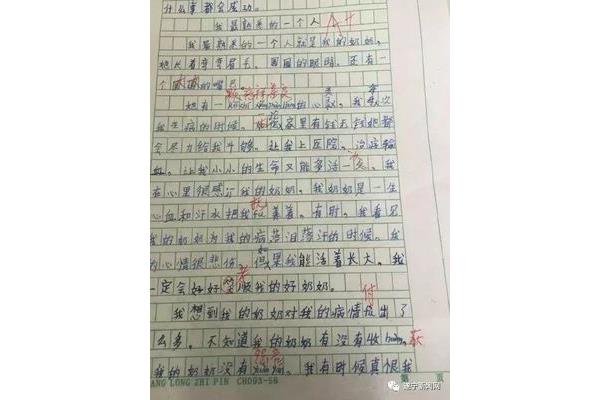 什么事都会成功。
我最熟悉的一个人 A+
我最熟悉的一个人就是我的奶奶。
她长着弯弯眉毛，圆圆的眼睛，还有一
个大大的嘴巴。
她有一 的心
我生病的时候， 家里有钱无钱她都
会尽力给我 够，让我上医院，治疗输
血，让我小小的生命又能多活一 。我
在心里很感 我的奶奶。我奶奶是一生
心血和汗水把我 养着。有时，我看见
我的奶奶为我的病落泪落汗的时候，我
的心情很悲伤。如果我能活着长大，我
一定会好好孝顺我的好奶奶。
我想到我的奶奶对我的病情付出了
么多，不知道我的奶奶有没有收 获
我的奶奶没有 。我有时候真恨我
ANG LONG ZHI PIN CHD93-56 第 页
遂宁新闻网